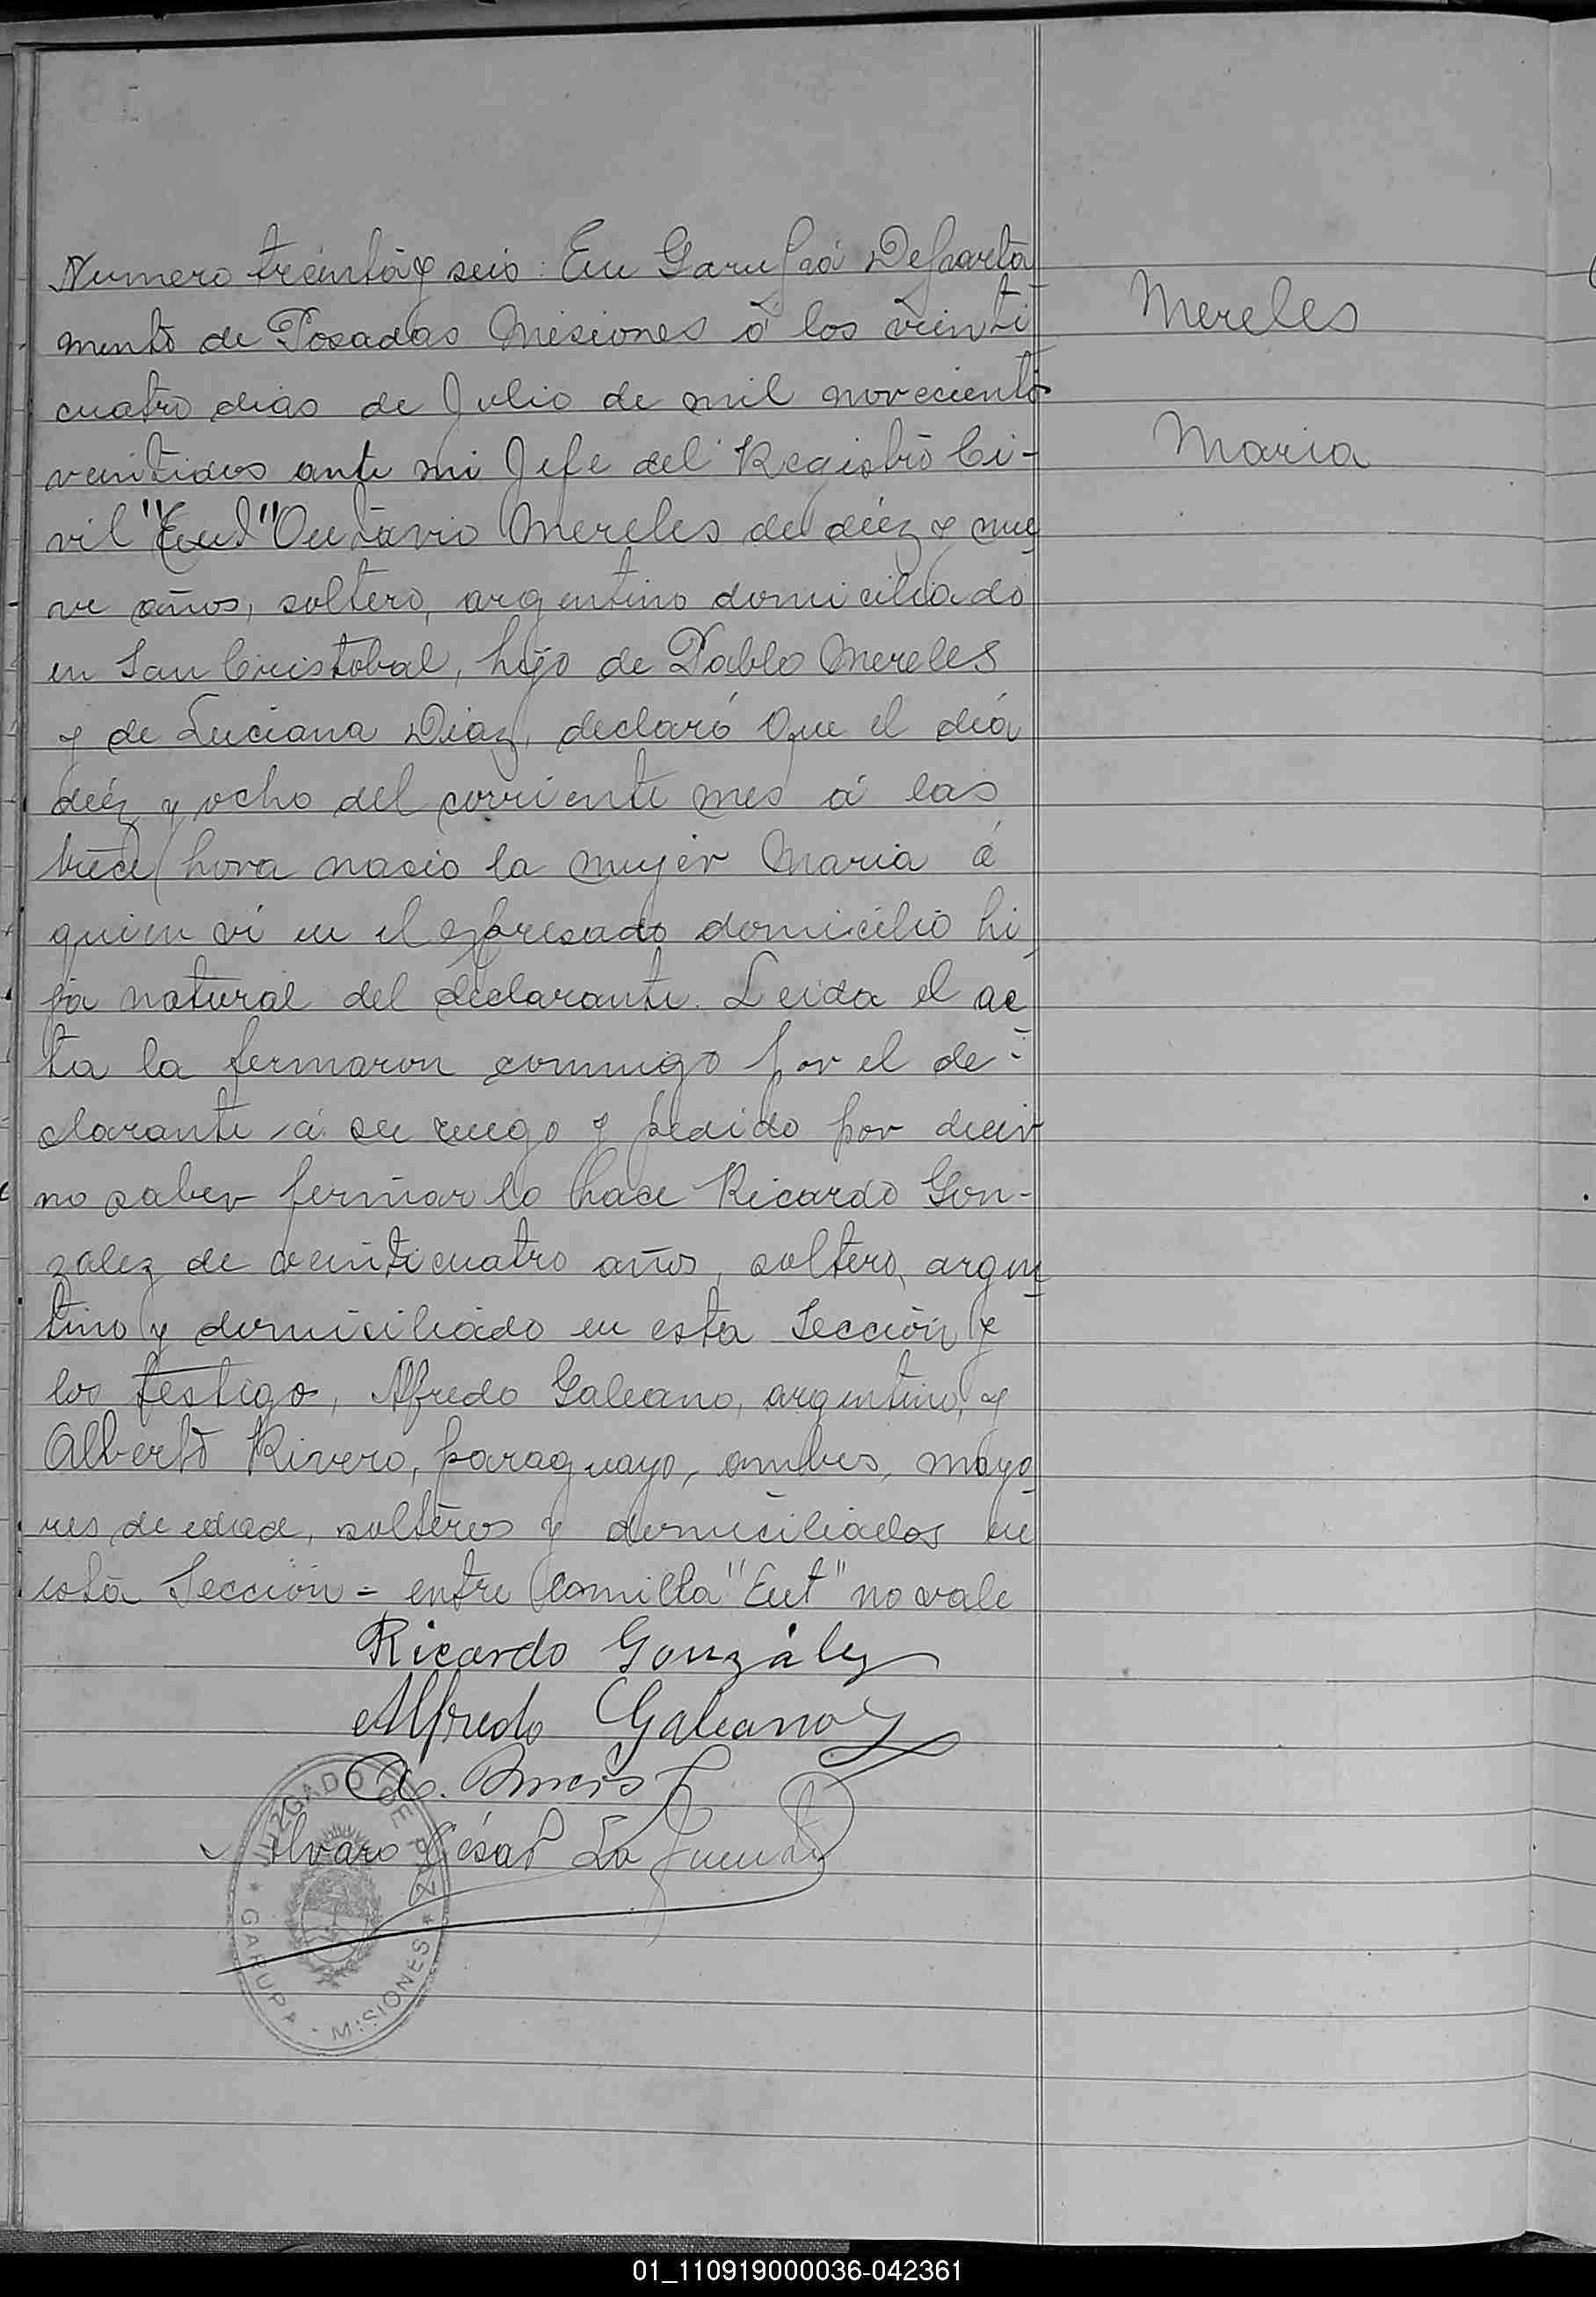 Numero treinta y seis: En Garupá Departa
mento de Posadas Misiones á los veinti
cuatro dias de Julio de mil novecientos
veintidos ante mi Jefe del Registro Ci-
vil "Eut" Outavio Mereles de diéz y nue
ve años, soltero, argentino domiciliado
en San Cristobal, hijo de Pablo Mereles
y de Luciana Diaz, declaró Que el día
diéz y ocho del corriente mes á las
trece hora nacio la mujer Maria á
quien ví en el espresado domicilio hi
ja natural del declarante. Leida el ac
ta la firmaron conmigo por el de-
clarante á su ruego y pedido por decir
no saber firmar lo hace Ricardo Gon-
zalez de veinticuatro años, soltero, argen
tino y domiciliado en esta Sección y
los testigo, Alfredo Galeano, argentino, y
Alberto Rivero, paraguayo, ambos, mayo
res de edad, solteros y domiciliados en
esta Sección = entre Comilla "Eut" no vale
Ricardo González
Alfredo Galeano
A.
Alvaro César La Fuente
JUZGADO DE PAZ
* GARUPA - MISIONES *
Mereles
Maria
01_110919000036-042361